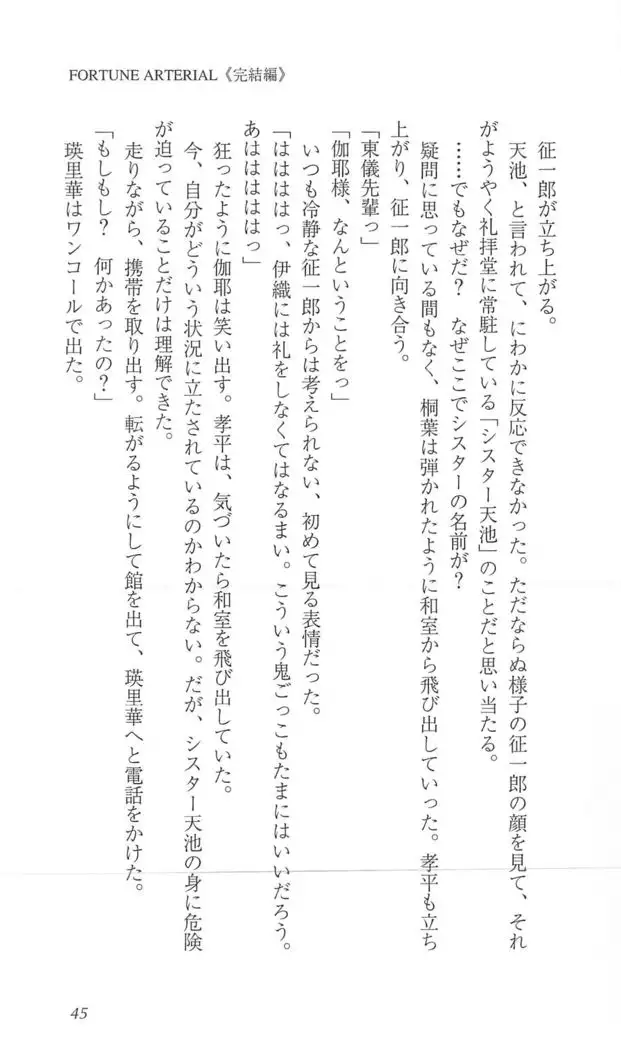 FORTUNE ARTERIAL《完結編》
征一郎が立ち上がる。
天池、と言われて、にわかに反応できなかった。ただならぬ様子の征一郎の顔を見て、それ
がようやく礼拝堂に常駐している「シスター天池」のことだと思い当たる。
……でもなぜだ？　なぜここでシスターの名前が？
疑問に思っている間もなく、桐葉は弾かれたように和室から飛び出していった。孝平も立ち
上がり、征一郎に向き合う。
「東儀先輩っ」
「伽耶様、なんということをっ」
いつも冷静な征一郎からは考えられない、初めて見る表情だった。
「はははははっ、伊織には礼をしなくてはなるまい。こういう鬼ごっこもたまにはいいだろう。
あはははははっ」
狂ったように伽耶は笑い出す。孝平は、気づいたら和室を飛び出していた。
今、自分がどういう状況に立たされているのかわからない。だが、シスター天池の身に危険
が迫っていることだけは理解できた。
走りながら、携帯を取り出す。転がるようにして館を出て、瑛里華へと電話をかけた。
「もしもし？　何かあったの？」
瑛里華はワンコールで出た。
45